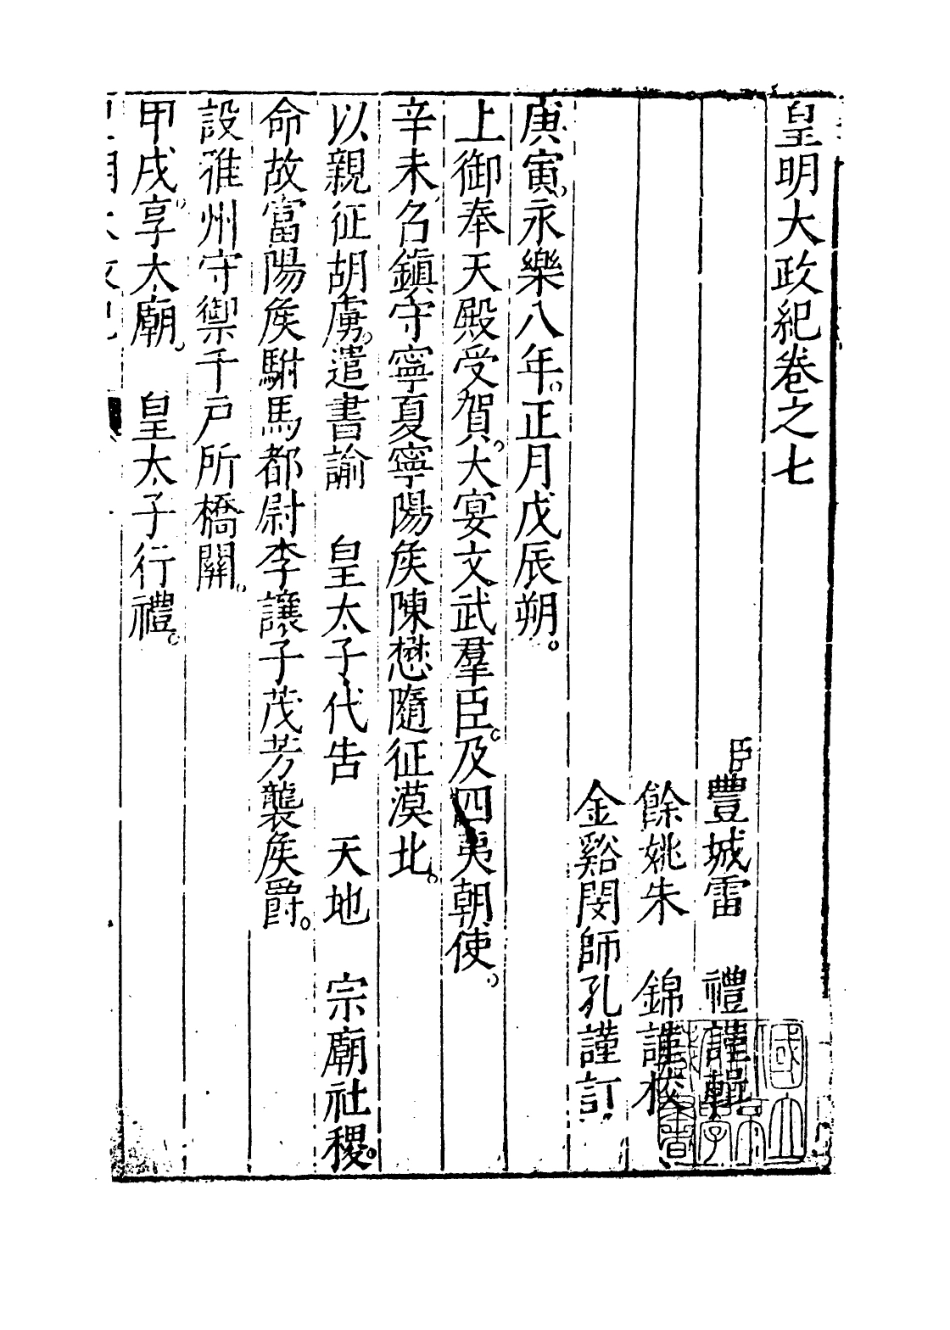 皇明大政紀卷之七
臣豐城雷　禮謹輯
餘姚朱　錦謹校
金谿閔師孔謹訂
庚寅。永樂八年。正月戊辰朔。
上御奉天殿受賀。大宴文武羣臣。及四夷朝使。
辛未。名鎮守寧夏寧陽矦陳懋隨征漠北。
以親征胡虜。遣書諭　皇太子代告　天地　宗廟社稷。
命故富陽矦駙馬都尉李讓子茂芳襲矦爵。
設雅州守禦千戶所橋關。
甲戌。享太廟。　皇太子行禮。